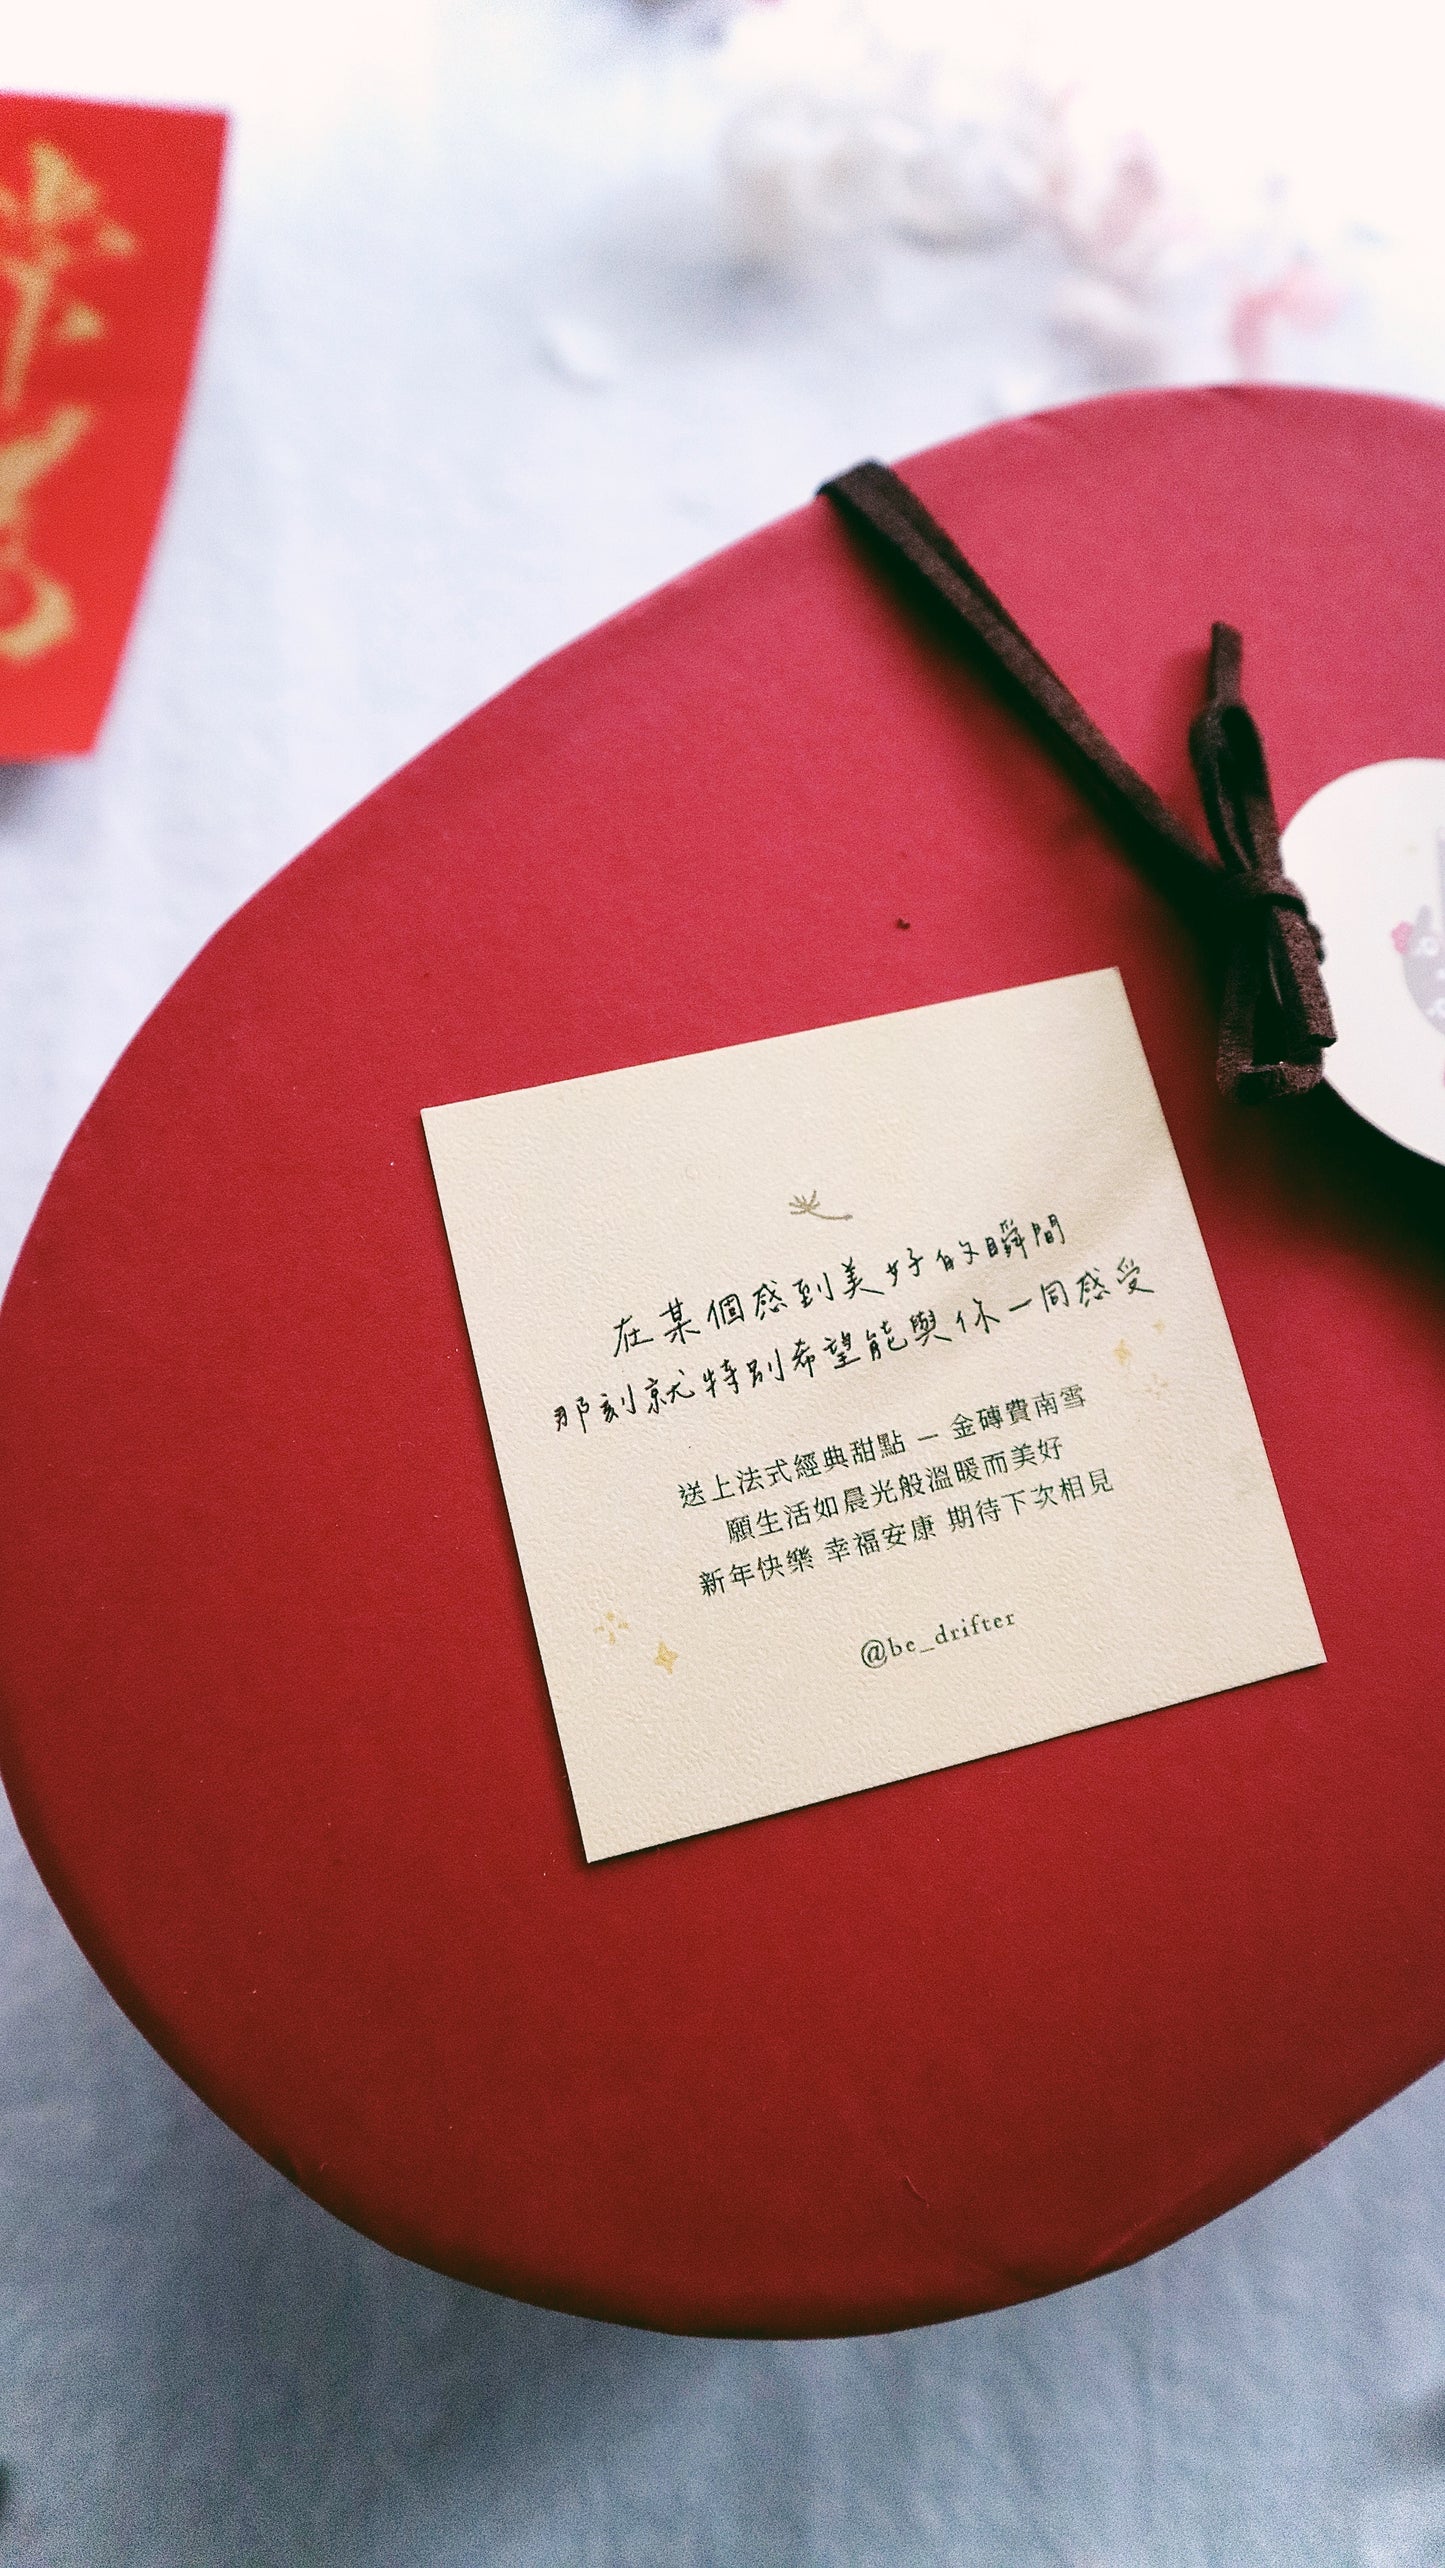 在某個感到美好的瞬間
那刻就特別希望能與你一同感受
送上法式經典甜點 — 金磚費南雪
願生活如晨光般溫暖而美好
新年快樂 幸福安康 期待下次相見
@be_drifter